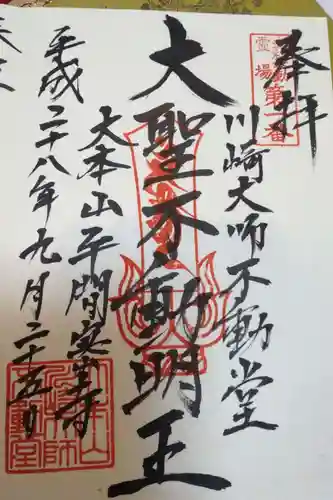 奉拝
川崎大師不動堂
大聖不動明王
大本山平間寺
平成二十八年九月二十五日
霊場
第一番